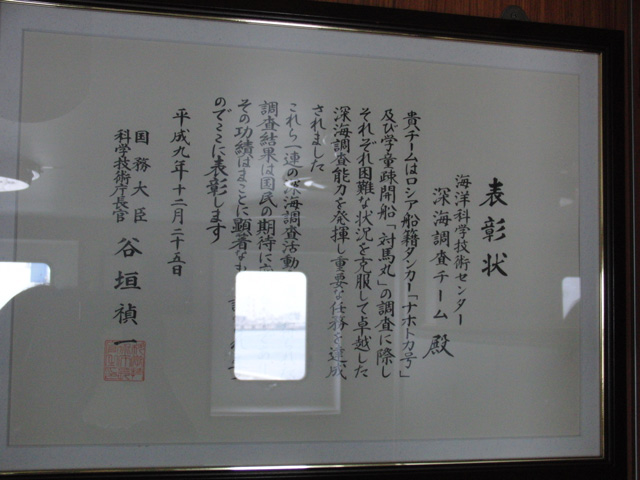 表彰状
海洋科学技術センター
深海調査チーム 殿
貴チームはロシア船籍タンカー「ナホトカ号」
及び学童疎開船「対馬丸」の調査に際し
それぞれ困難な状況を克服して卓越した
深海調査能力を発揮し重要な任務を達成
されました
これら一連の深海調査活動
調査結果は国民の期待に
その功績はまことに顕著な
のでここに表彰します
平成九年十二月二十五日
国務大臣
科学技術庁長官 谷垣禎一